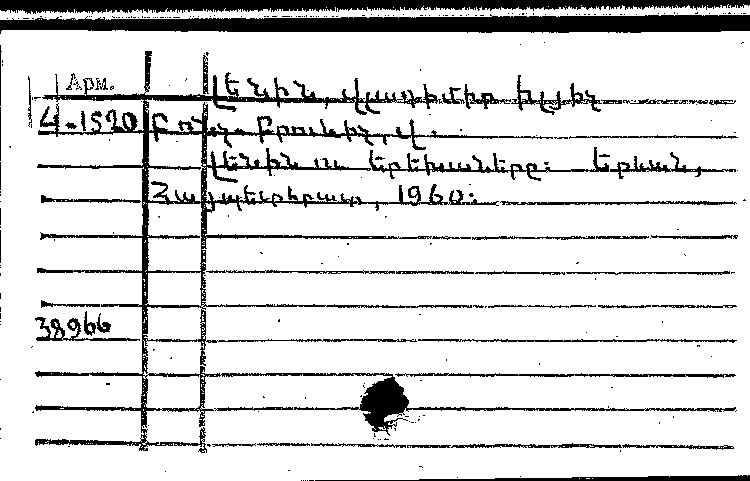 Арм.
Լենին, Վլադիմիր Իլյիչ
Վ-1520 Բոնչ-Բրուևիչ, Վ.
Լենին ու երեխաները: Երևան,
Հայպետհրատ, 1960:
38966